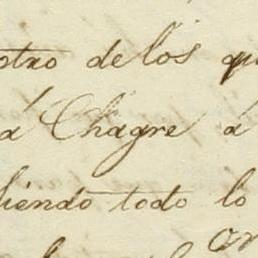 otro de los qu
á Chagre á
iendo todo lo